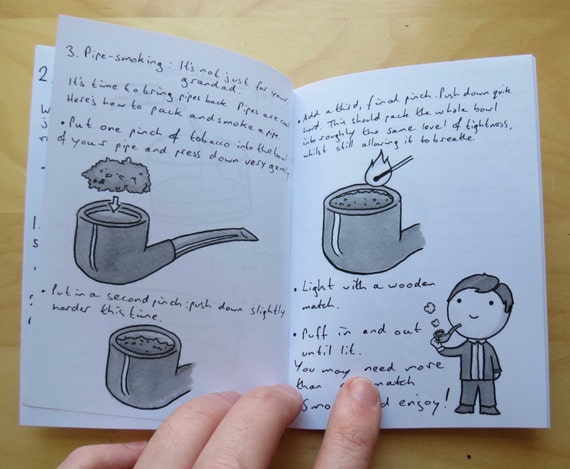 3. Pipe-smoking: It's not just for your
grandad.
It's time to bring pipes back. Pipes are cool
Here's how to pack and smoke a pipe
• Put one pinch of tobacco into the bowl
of your pipe and press down very gently
• Put in a second pinch: push down slightly
harder this time.
• Add a third, final pinch. Push down quite
hard. This should pack the whole bowl
into roughly the same level of tightness,
whilst still allowing it to breathe.
• Light with a wooden
match.
• Puff in and out
until lit.
You may need more
than match
enjoy!
2